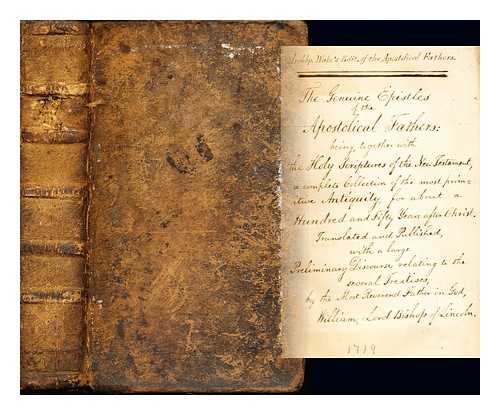 Archbp. Wake's Edit. of the Apostolical Fathers.
The Genuine Epistles
of the
Apostolical Fathers:
being together with
the Holy Scriptures of the New Testament,
a complete Collection of the most primi-
tive Antiquity, for about a
Hundred and Fifty Years after Christ.
Translated and Published,
with a large
Preliminary Discourse relating to the
several Treatises,
by the Most Reverend Father in God,
William, Lord Bishop of Lincoln.
1719